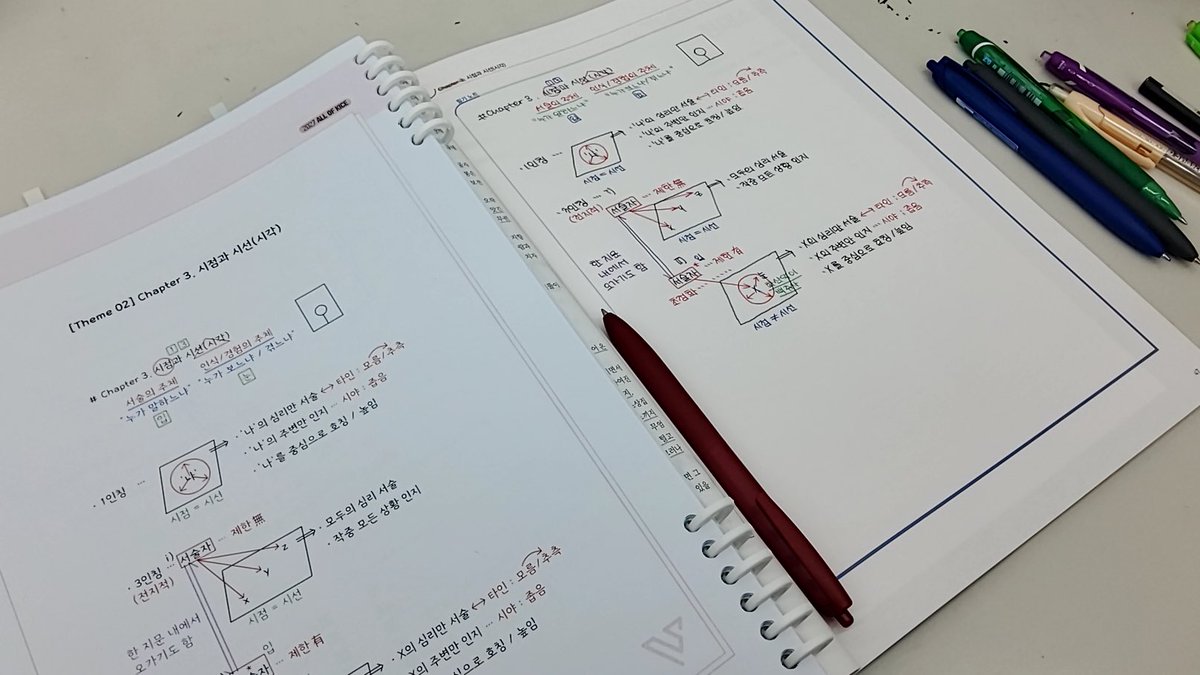 2027 ALL OF KICE
[Theme 02] Chapter 3. 시점과 시선(시각)
1 3
# Chapter 3. 시점과 시선(시각)
서술의 주체 인식/경험의 주체
"누가 말하느냐" "누가 보느냐 / 겪느냐"
입 눈
· 1인칭 ···
'나'
시점 = 시선
· '나'의 심리만 서술 ↔ 타인 : 모름/추측
· '나'의 주변만 인지 ··· 시야 : 좁음
· '나'를 중심으로 호칭 / 높임
· 3인칭 ···
(전지적)
i)
서술자 ··· 제한 無
X Y Z
시점 = 시선
· 모두의 심리 서술
· 작중 모든 상황 인지
한 지문 내에서
오가기도 함
입
··· 제한 有
· X의 심리만 서술 ↔ 타인 : 모름/추측
· X의 주변만 인지 ··· 시야 : 좁음
심으로 호칭 / 높임
Chapter 3. 시점과 시선(시각)
필기노트
1 3
# Chapter 3. 시점과 시선(시각)
서술의 주체 인식/경험의 주체
"누가 말하느냐" "누가 보느냐/겪느냐"
입 눈
· 1인칭 ···
'나'
시점 = 시선
· '나'의 심리만 서술 ↔ 타인 : 모름/추측
· '나'의 주변만 인지 ··· 시야 : 좁음
· '나'를 중심으로 호칭/높임
· 3인칭 ···
(전지적)
i)
서술자 ··· 제한 無
X Y Z
시점 = 시선
· 모두의 심리 서술
· 작중 모든 상황 인지
한 지문
내에서
오가기도 함
ii) 입
서술자 ··· 제한 有
초점화
X
시점 ≠ 시선
· X의 심리만 서술 ↔ 타인 : 모름/추측
· X의 주변만 인지 ··· 시야 : 좁음
· X를 중심으로 호칭/높임